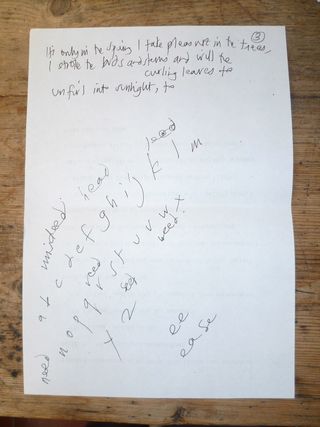 ③
It's only in the Spring I take pleasure in the trees,
I stroke the buds and stems and will the
curling leaves to
unfurl into sunlight, to
lead
read
unident
a b c d e f g h i j k l m
need
reed
weed
n o p q r s t u v w x
seed
Y Z
ee
ease